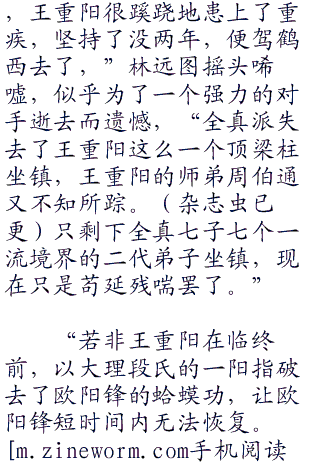 ，王重阳很蹊跷地患上了重
疾，坚持了没两年，便驾鹤
西去了，”林远图摇头唏
嘘，似乎为了一个强力的对
手逝去而遗憾，“全真派失
去了王重阳这么一个顶梁柱
坐镇，王重阳的师弟周伯通
又不知所踪。（杂志虫已
更）只剩下全真七子七个一
流境界的二代弟子坐镇，现
在只是苟延残喘罢了。”
“若非王重阳在临终
前，以大理段氏的一阳指破
去了欧阳锋的蛤蟆功，让欧
阳锋短时间内无法恢复。
[m.zineworm.com手机阅读